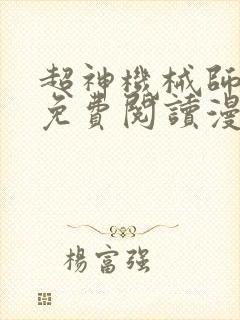 超神機械師
免費閱讀漫
楊富强